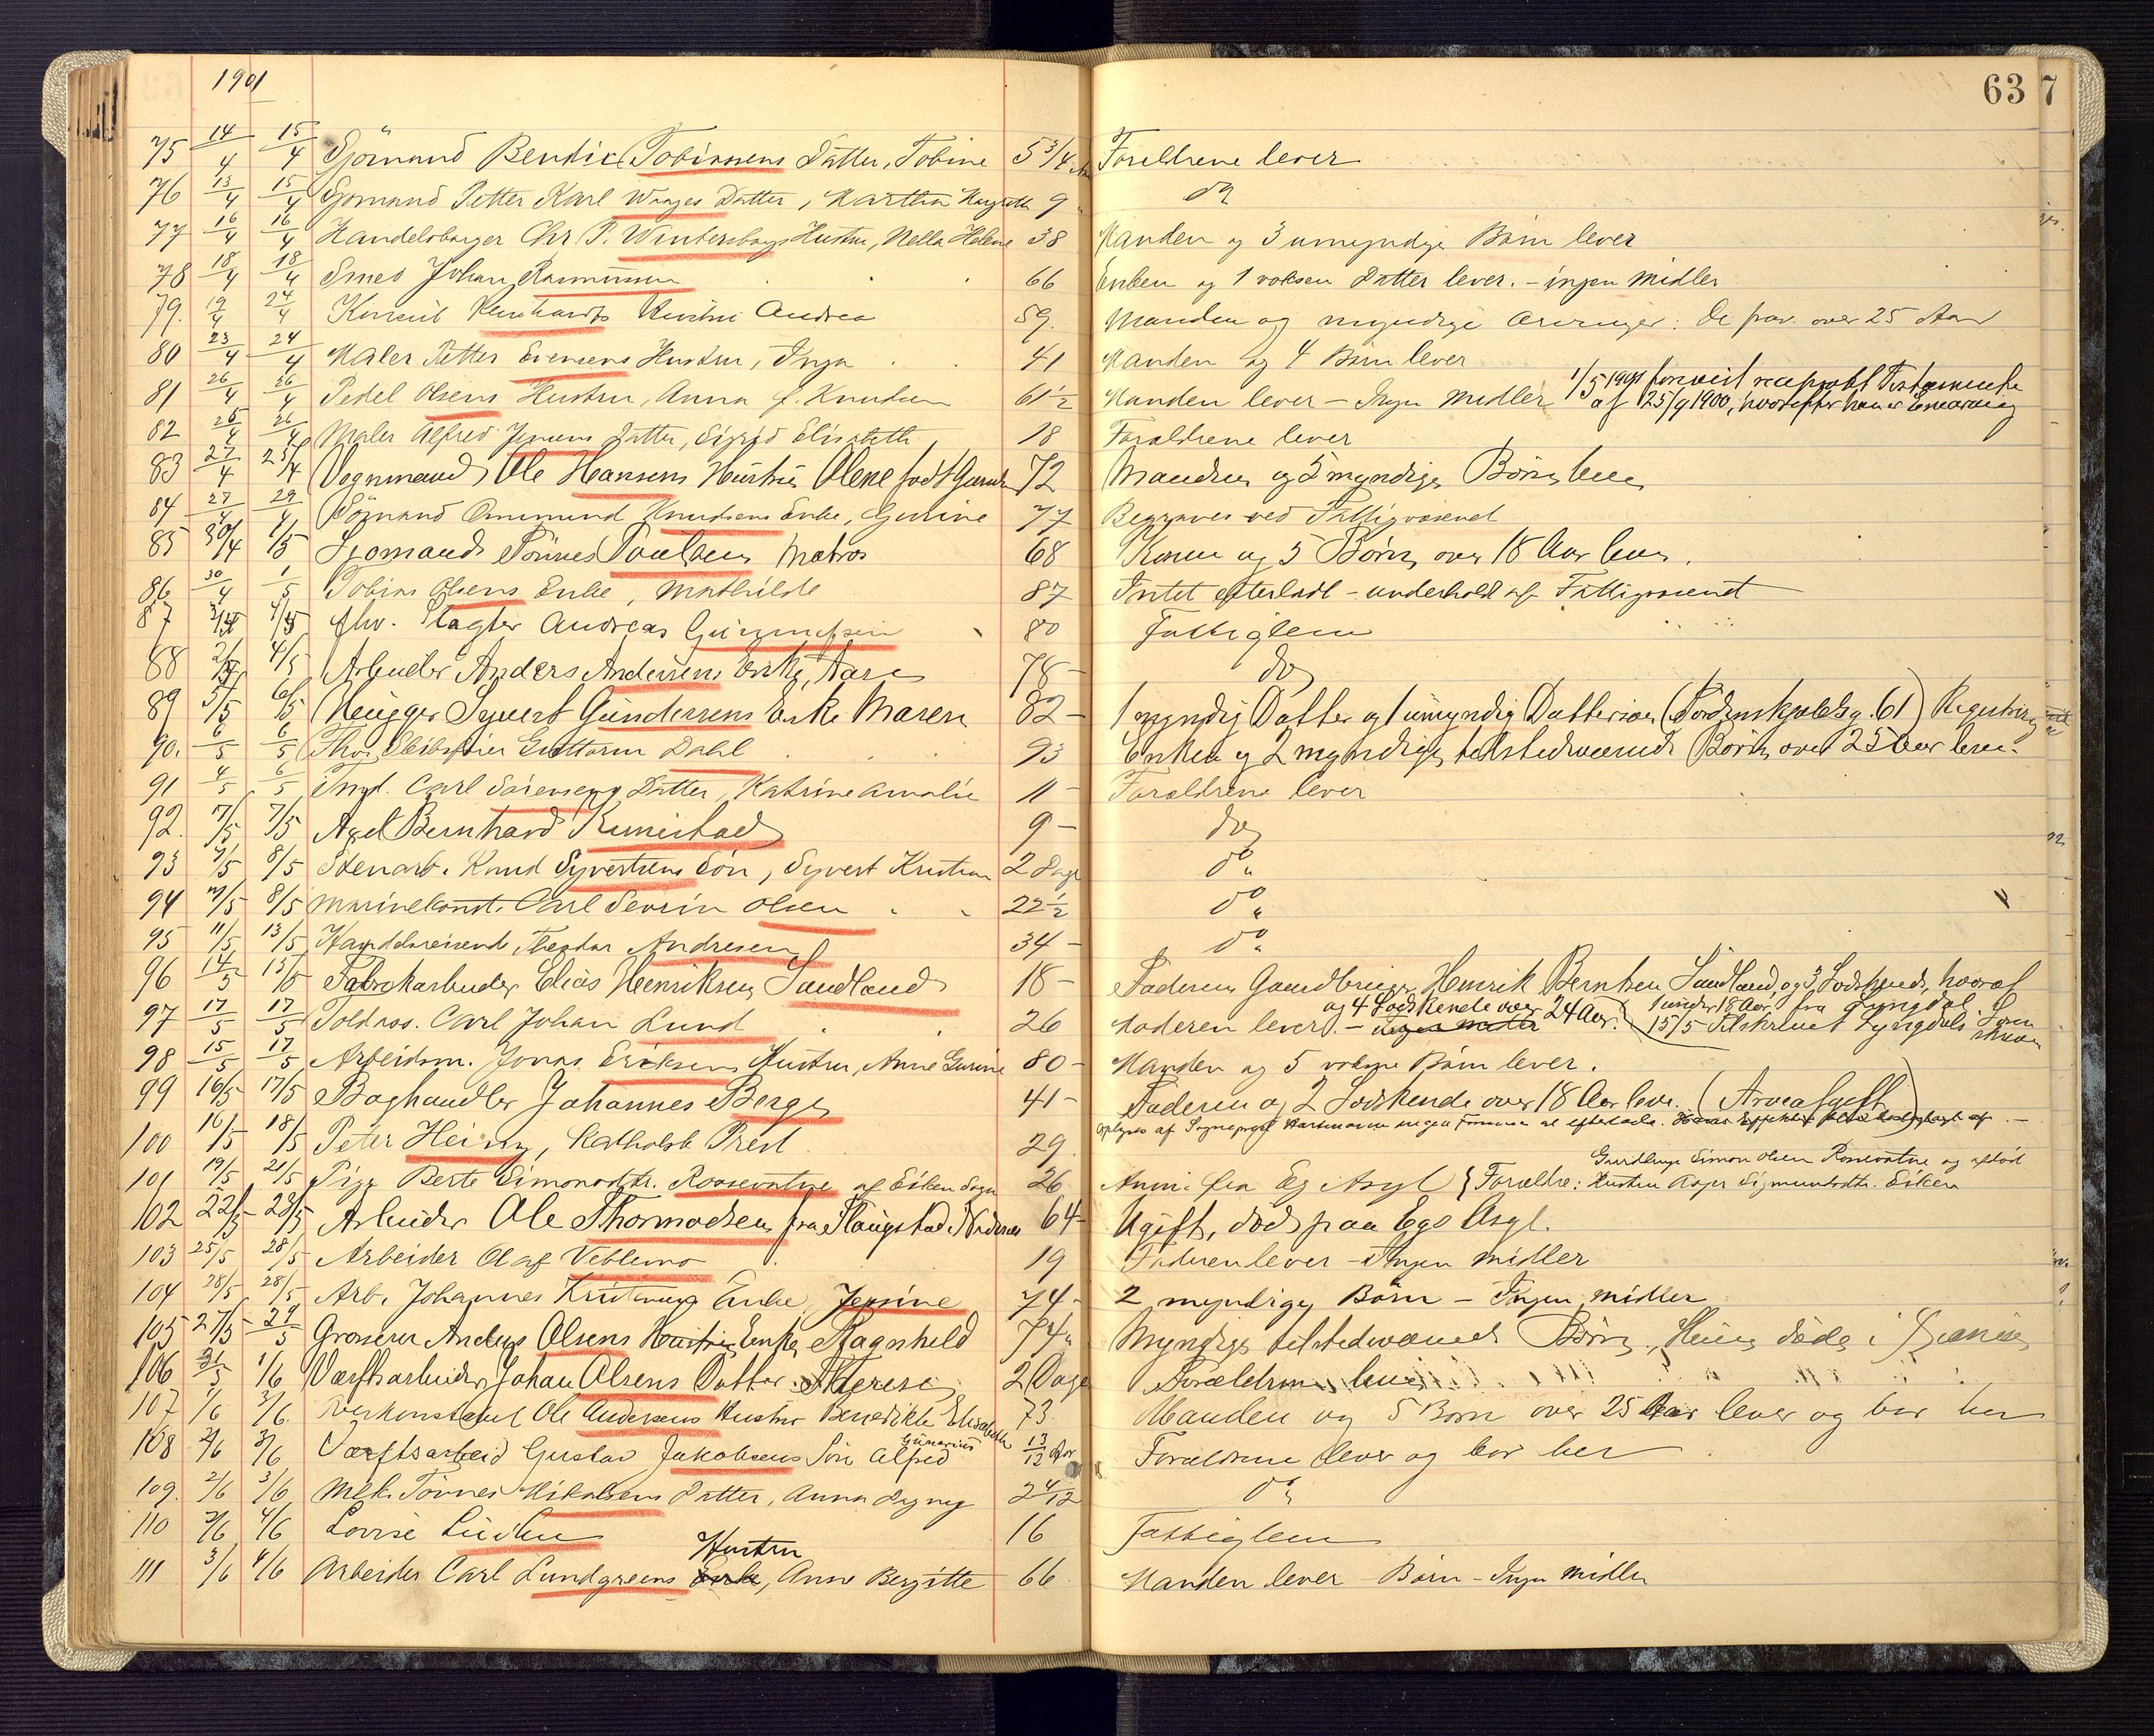 1901
63
7
75 14/4 15/4 Sjömand Bendix Tobiassens Datter, Tobine 5 3/4 Aar Forældrene lever
76 13/4 15/4 Sjömand Petter Karl Waages Datter, Martha Margrethe 9 do
77 16/4 16/4 Handelsborger Chr P. Wintersborgs Hustru, Nella Helene 38 Manden og 3 umyndige Börn lever
78 18/4 18/4 Smed Johan Rasmussen 66 Enken og 1 voksen Datter lever. - ingen Midler
79. 19/4 24/4 Konsul Reinhardts Hustru Andrea 59. Manden og myndige Arvinger: De paar. over 25 Aar
80 23/4 24/4 Maler Petter Evensens Hustru, Inga 41 Manden og 4 Börn lever
1/5 1901 forevist Testamente
81 26/4 26/4 Pedel Olsens Hustru, Anna f. Knudsen 61 1/2 Manden lever - Ingen Midler af 25/9 1900, hvorefter han er Enearving
82 25/4 26/4 Maler Alfred Jensens Datter, Sigrid Elisabeth 18 Forældrene lever
83 27/4 29/4 Vognmand Ole Hansens Hustru Olene født 72 Manden og 5 myndige Börn lever
84 27/4 29/4 Sömand Ommund Knudsens Enke, Gurine 77 Begraves ved Fattigvæsenet
85 30/4 1/5 Sjömand Tönnes Paulsen Matros 68 Konen og 5 Börn over 18 Aar lever.
86 30/4 1/5 Tobias Olsens Enke, Mathilde 87 Intet efterladt - underholdt af Fattigvæsenet
87 4/5 fhv. Slagter Andreas 80 Fattiglem
88 2/5 4/5 Arbeider Anders Andersens Enke, Aase 78 - do
89 3/5 6/5 Snigger Syvert Gundersens Enke Maren 82 - 1 myndig Datter og 1 umyndig Dattersön (Tordenskjoldsg. 61)
90. 6/5 6/5 Guttorm Dahl 93 Enken og 2 myndige tilstedeværende Börn over 25 Aar lever.
91 4/5 6/5 Carl Sörensens Datter, Katrine Amalie 11 - Forældrene lever
92. 7/5 7/5 Axel Bernhard Runestad 9 - do
93 7/5 8/5 Stenarb. Knud Syvertsens Sön, Syvert Kristian 2 Dage do
94 7/5 8/5 Marinekonst. Carl Severin Olsen 22 1/2 do
95 11/5 13/5 Handelsreisende Theodor Andresen 34 - do
96 14/5 15/5 Fabrikarbeider Elias Henriksen Sandland 18 - Faderen Gaardbruger Henrik Berntsen Sandland og 3 Sødskende, hvoraf
og 4 Sødskende over 24 Aar. 1 under 18 Aar, fra Lyngdal.
97 17/5 17/5 Toldass. Carl Johan Lund 26 Moderen lever - ingen midler 15/5 Tilskrevet Lyngdals
98 15/5 17/5 Arbeidsm. Jonas Eriksens Hustru, Anne Gurine 80 - Manden og 5 voksne Börn lever.
99 16/5 17/5 Boghandler Johannes Berge 41 - Faderen og 2 Sødskende over 18 Aar lever. (Arveafgift)
100 16/5 18/5 Peter Heiny, Katholsk Prest 29. Oplyses af Sogneprest Hartmann ingen Formue at efterlade.
Gaardbruger Simon Olsen Rossevatne og afdød
101 19/5 21/5 Pige Berte Simonsdtr. Rossevatne af Eiken Sogn 26 Anm. fra Eg Asyl { Forældre: Hustru Aasa Sigmundsdtr. Eiken
102 22/5 23/5 Arbeider Ole Thormodsen fra 64 - Ugift, död paa Egs Asyl.
103 25/5 28/5 Arbeider Olaf Veblemo 19 Faderen lever - Ingen midler
104 28/5 28/5 Arb. Johannes Enke, Jensine 74 - 2 myndige Börn - Ingen midler
105 27/5 29/5 Grosserer Anders Olsens Hustru Enke Ragnhild 74 Myndige tilstedeværende Börn.
106 31/5 1/6 Værftsarbeider Johan Olsens Datter Therese 2 Dage Forældrene lever
107 1/6 3/6. Overkonstabel Ole Andersens Hustru Benedikte Elisabeth 73. Manden og 5 Börn over 25 Aar lever og bor her
Gunerius
108 2/6 3/6 Værftsarbeid Gustav Jakobsens Sön Alfred 13/12 Aar Forældrene lever og bor her
109. 2/6 3/6 Mek. Tönnes Mikalsens Datter, Anna Dagny 2 4/12 do
110 2/6 4/6 Lovise 16 Fattiglem
Hustru
111 3/6 4/6 Arbeider Carl Lundgreens Enke, Anne Bergitte 66. Manden lever - Börn - Ingen midler